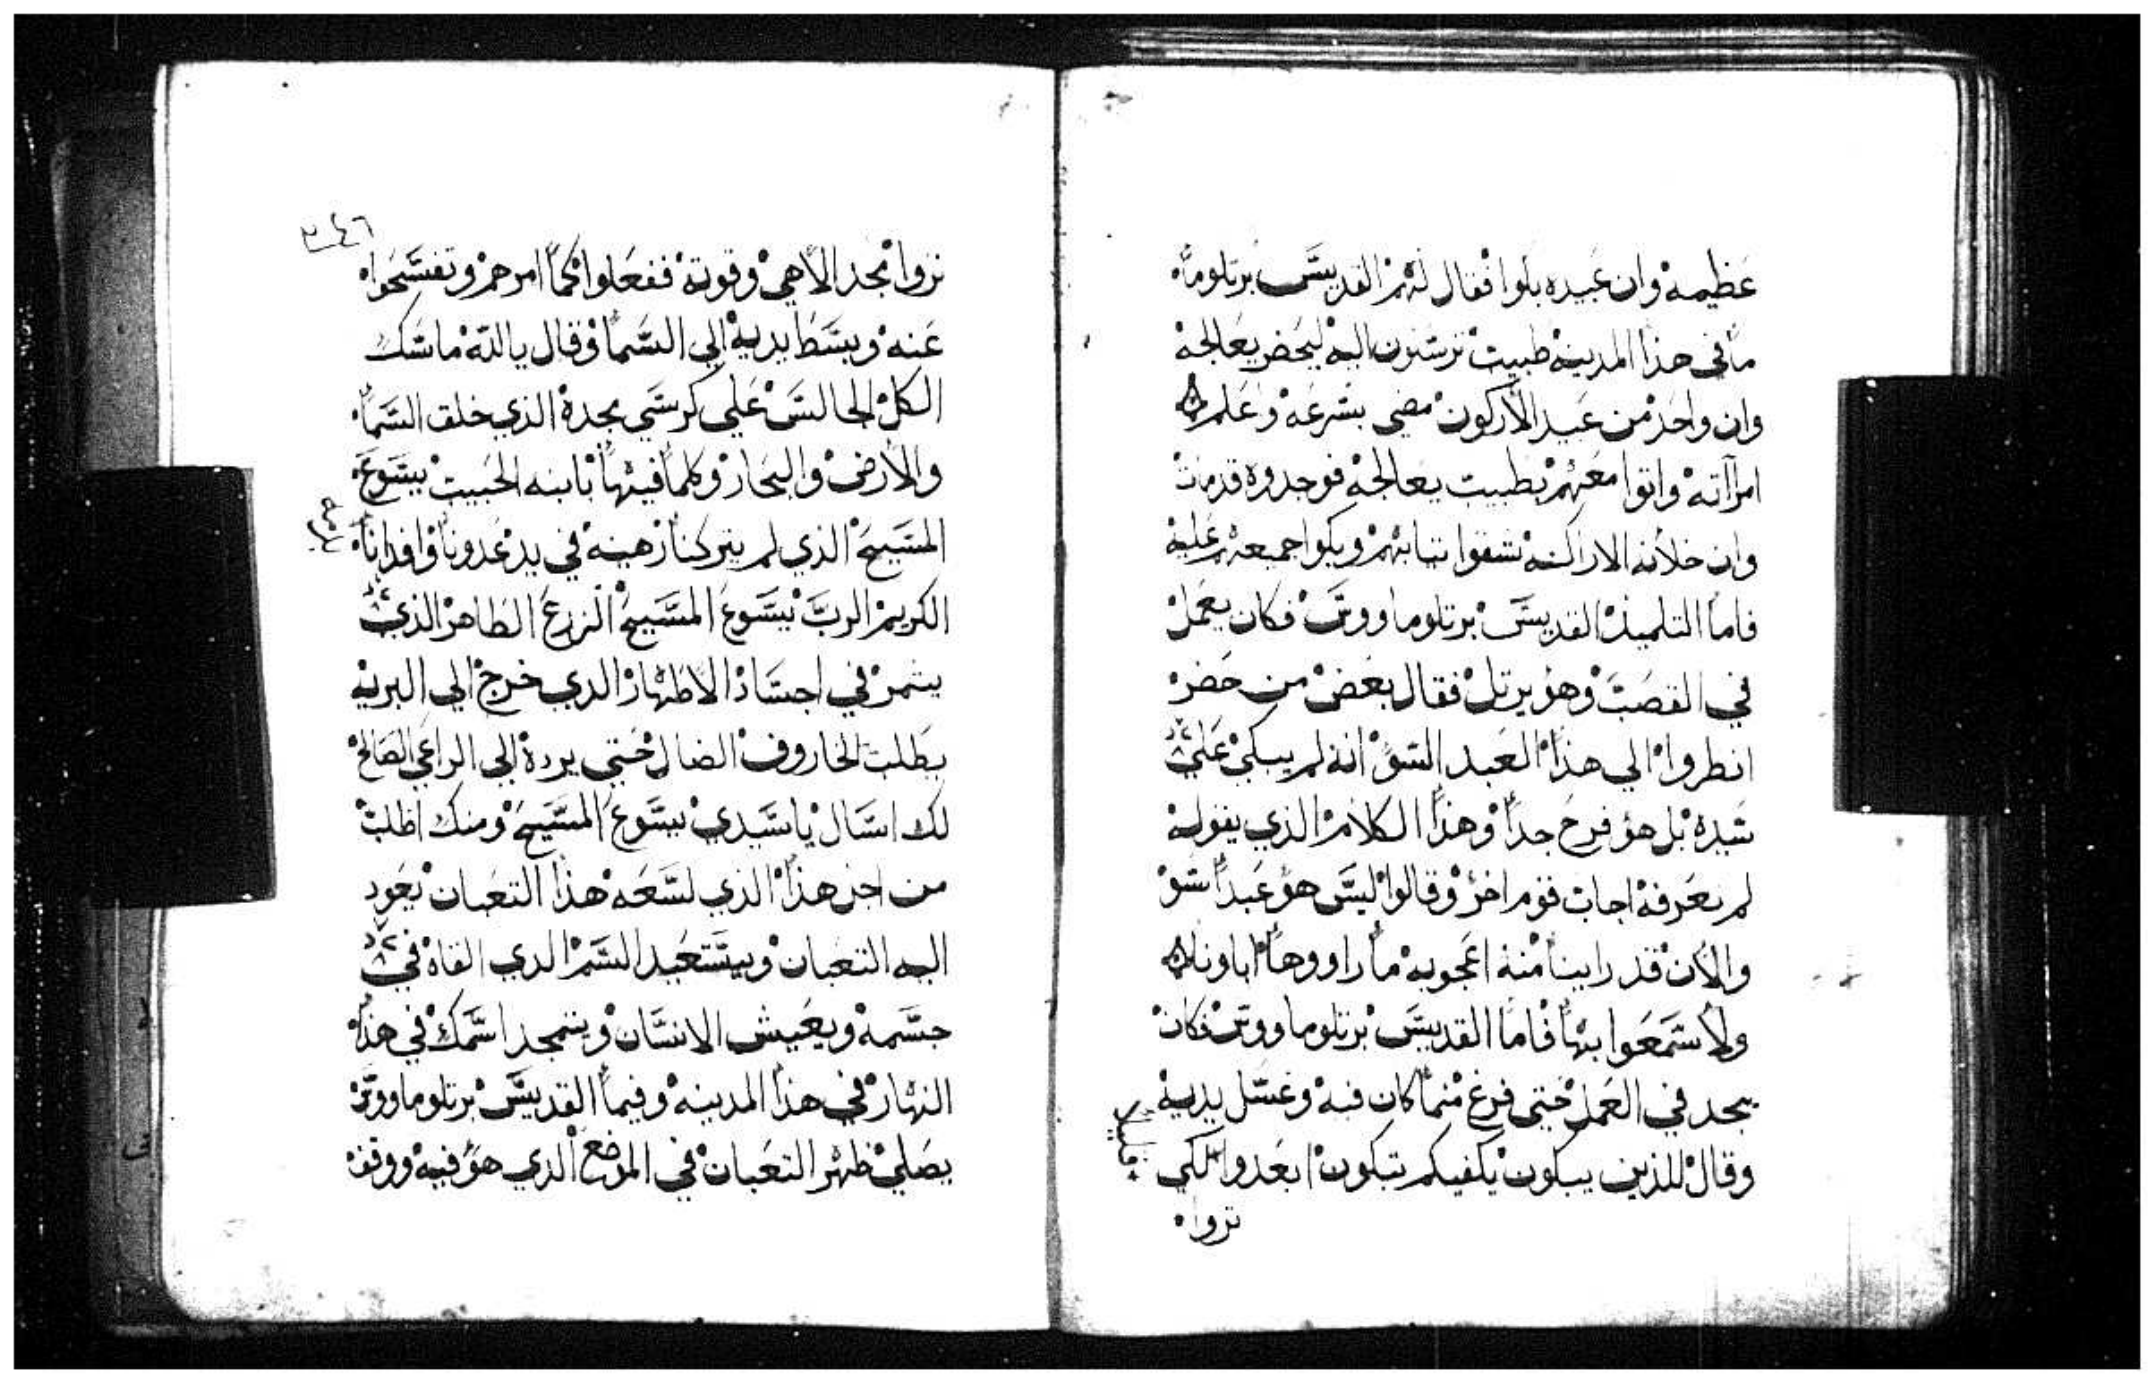 عظيمه وان عبيده بكوا فقال لهم القديس برتلوما
ما في هذا المدينه طبيب ترسلون اليه ليحضر يعالجه
وان واحد من عبيد الأركون مضى بسرعه وعلم
امرآته واتوا معهم بطبيب يعالجه فوجدوه قد مات
وان خلانه الاراكنه شقوا تيابهم وبكوا جميعهم عليه
فاما التلميذ القديس برتلوماووس فكان يعمل
في القصب وهو يرتل فقال بعض من حضر
انظروا الي هذا العبد السو انه لم يبكي علي
سيده بل هو فرح جداً وهذا الكلام الذي يقوله
لم نعرفه اجاب قوم اخر وقالوا ليس هو عبداً سو
والأن قد راينا منه اعجوبه ما راووها اباونا
ولا سمعوا بها فاما القديس برتلوماووس فكان
يجد في العمل حتي فرغ مما كان فيه وغسل يديه
وقال للذين يبكون يكفيكم تبكون ابعدوا لكي
تروا
٣٤٦
تروا مجد الأهي وقوته ففعلوا كما امرهم وتفسحوا
عنه وبسط يديه الي السما وقال يا الله ماسك
الكل الجالس علي كرسي مجده الذي خلق السما
والأرض والبحار وكلما فيها بابنه الحبيب يسوع
المسيح الذي لم يتركنا رهينه في يد عدونا وافدانا
الكريم الرب يسوع المسيح الزرع الطاهر الذي
يتمر في اجساد الاطهار الدي خرج الي البريه
يطلب الخاروف الضال حتي يرده الي الراعي الصالح
لك اسال ياسيدي يسوع المسيح ومنك اطلب
من اجل هذا الذي لسعه هذا التعبان يعود
اليه التعبان ويستعيد السم الدي القاه في
جسمه ويعيش الانسان ويتمجد اسمك في هذا
النهار في هذا المدينه وفيما القديس برتلوماووس
يصلي ظهر التعبان في الموضع الدي هو فيه ووقف